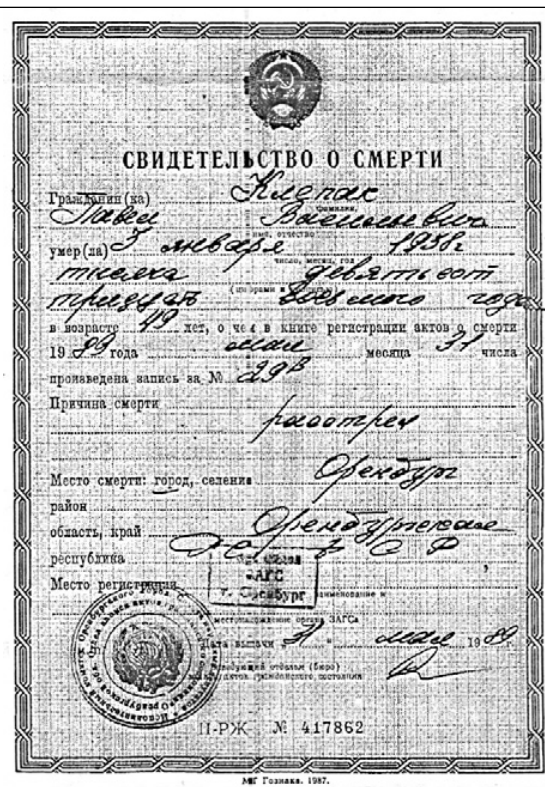 СВИДЕТЕЛЬСТВО О СМЕРТИ
Гражданин (ка) Клепак
фамилия,
Павел Васильевич
имя, отчество
умер(ла) 3 января 1938г
число, месяц, год
тысяча девятьсот
тридцать восьмого года
в возрасте 49 лет, о чем в книге регистрации актов о смерти
19 89 года мая месяца 31 числа
произведена запись за № 29
Причина смерти
расстрел
Место смерти: город, селение Оренбург
район
область, край Оренбургская
республика РСФ
Место регистрации
ЗАГС
г. Оренбург
наименование и
местонахождение органа ЗАГСа
Дата выдачи 31 " мая 19 89 г.
Заведующий отделом (бюро)
записи актов гражданского состояния
II-РЖ № 417862
МТГ Гознака. 1987.